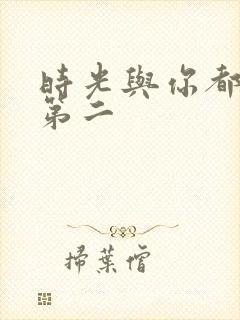 時光與你都
第二
掃葉僧